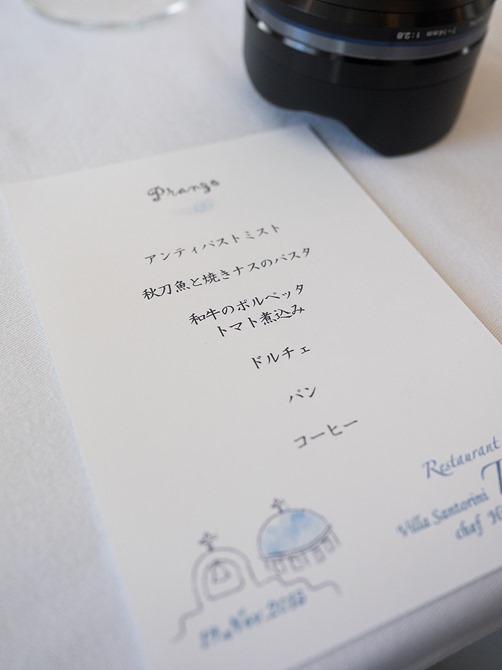 7-14mm 1:2.8
Pranzo
アンティパストミスト
秋刀魚と焼きナスのパスタ
和牛のポルペッタ
トマト煮込み
ドルチェ
パン
コーヒー
Restaurant
Villa Santorini
chef